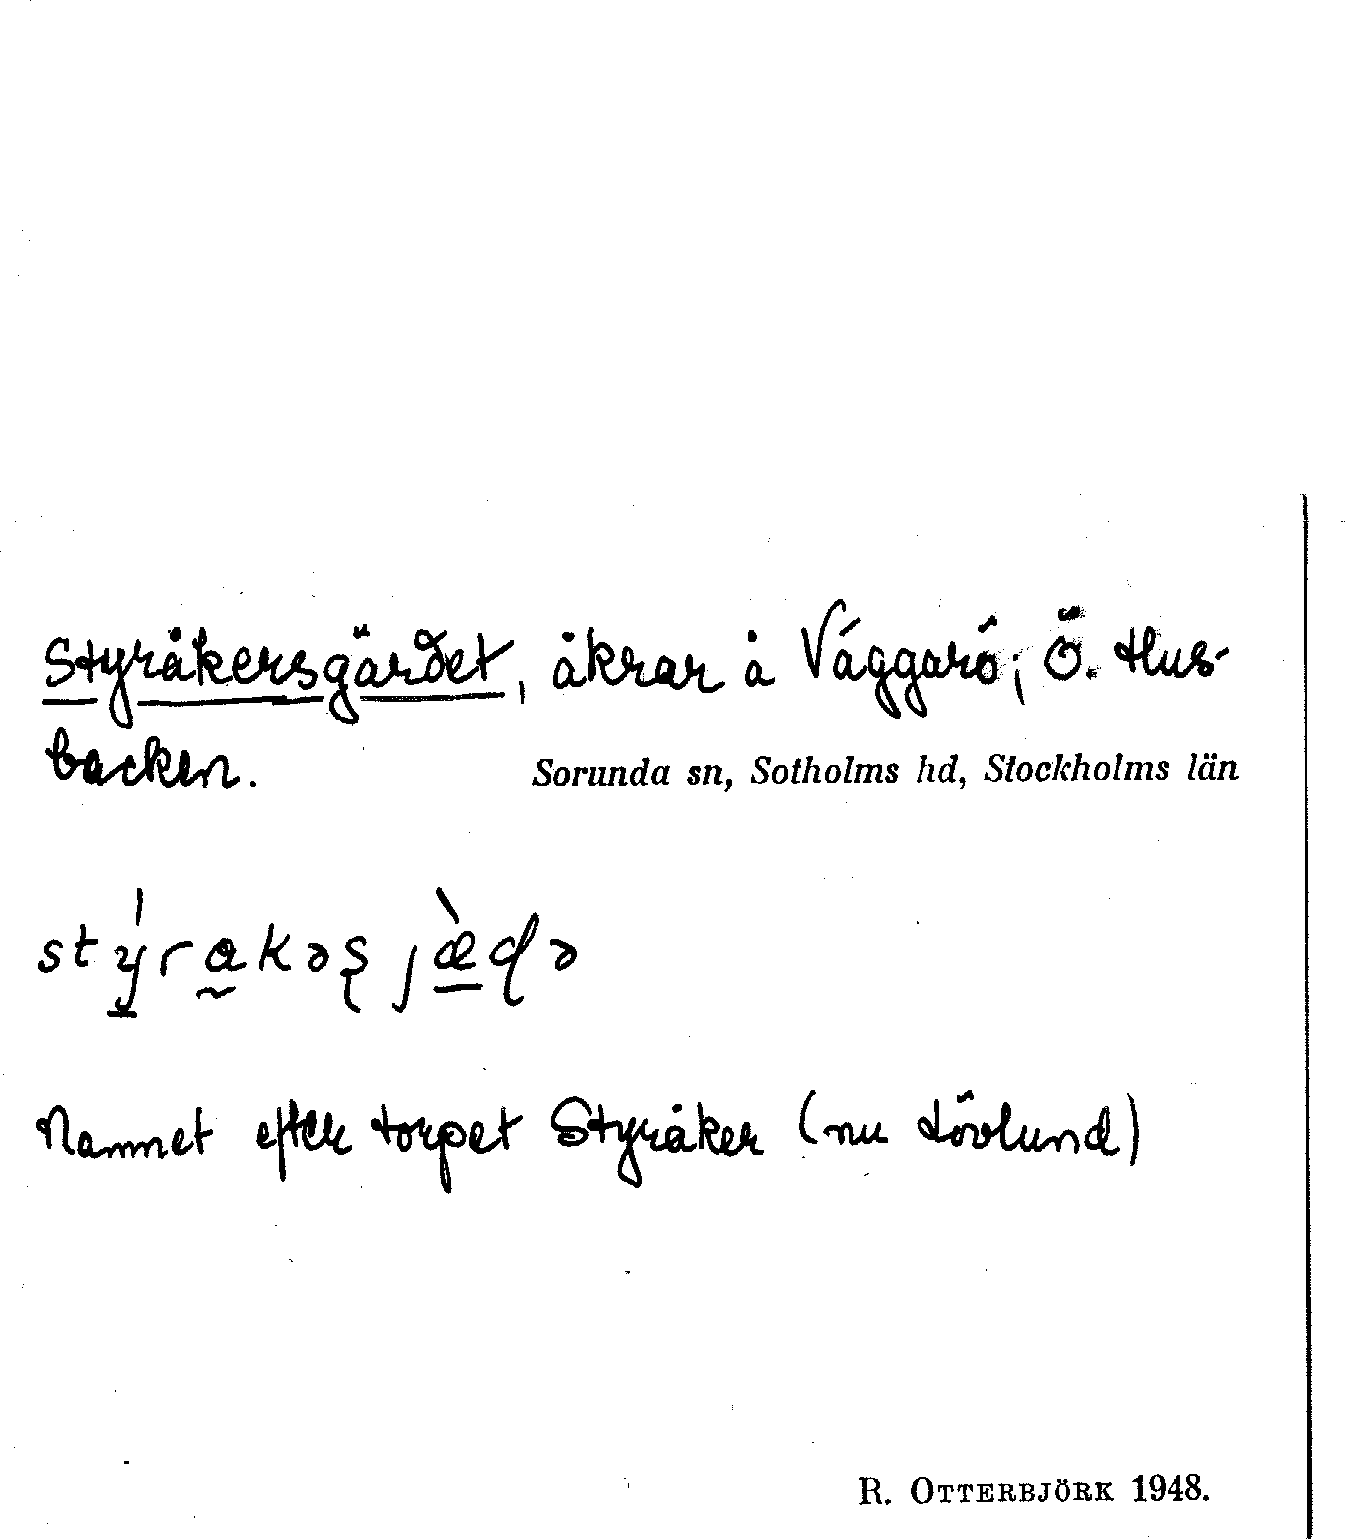 Styråkersgärdet, åkrar å Väggarö; Ö. Hus-
backen.
Sorunda sn, Sotholms hd, Stockholms län
Namnet efter torpet Styråker (nu Lövlund)
R. OTTERBJÖRK 1948.